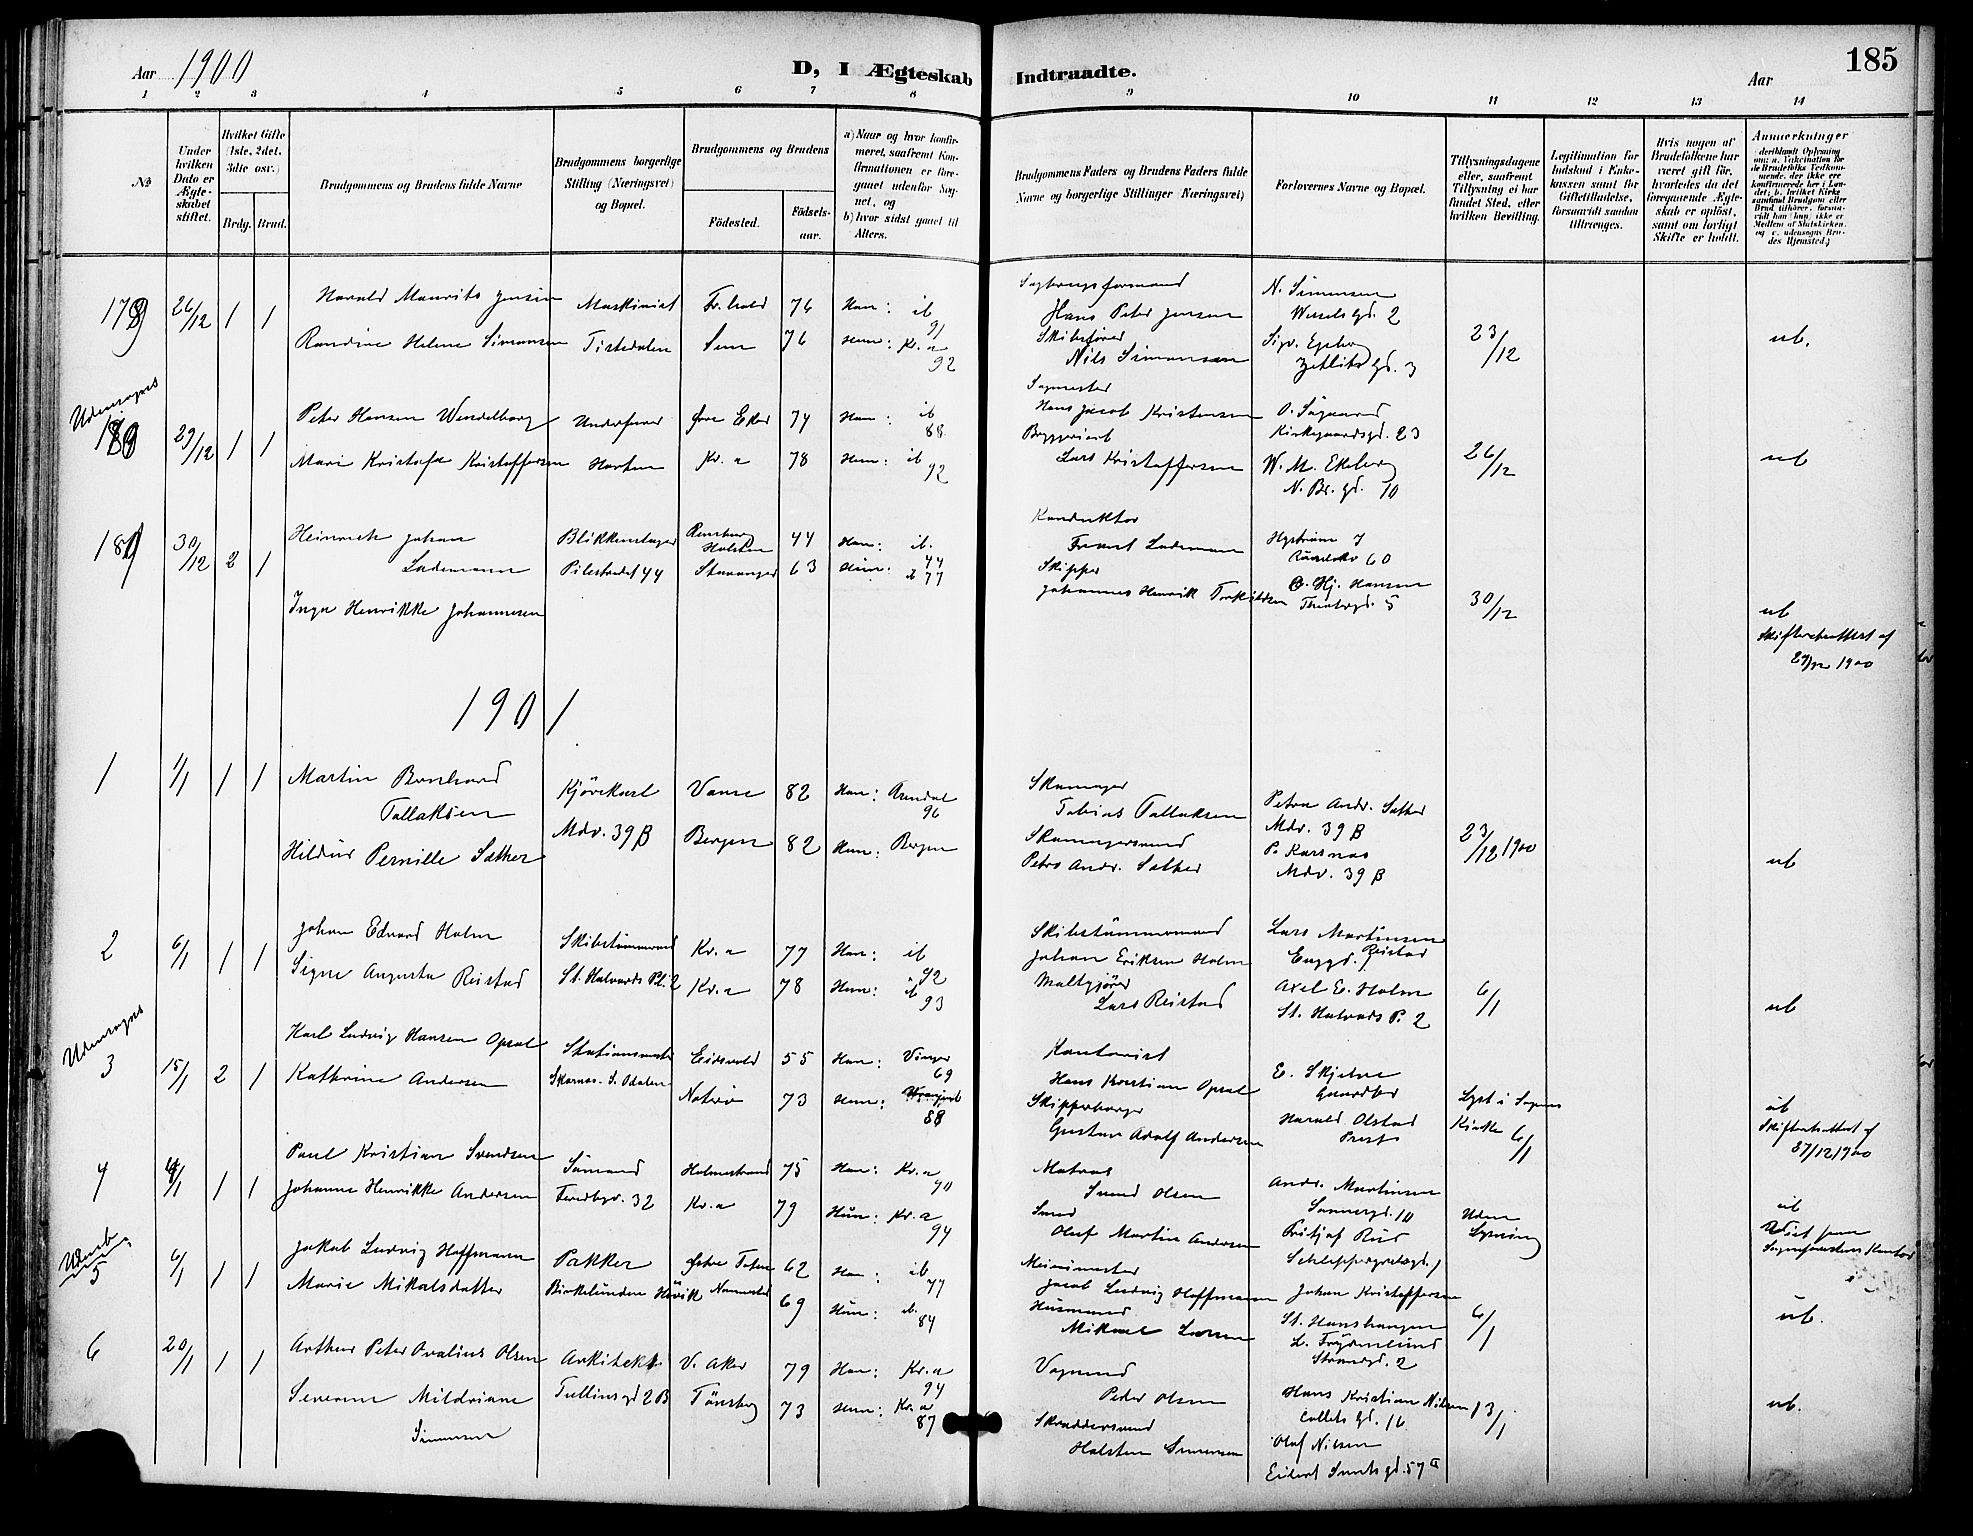 Aar 1900
D, I Ægteskab Indtraadte.
Aar
185
1 2 3 4 5 6 7 8 9 10 11 12 13 14
No
Under hvilken Dato er Ægteskabet stiftet.
Hvilket Gifte (1ste, 2det, 3die osv.)
Brdg. Brud.
Brudgommens og Brudens fulde Navne
Brudgommens borgerlige Stilling (Næringsvei) og Bopæl.
Brudgommens og Brudens
Fødested.
Fødselsaar.
a) Naar og hvor konfirmeret, saafremt Konfirmationen er foregaaet udenfor Sognet, og
b) hvor sidst gaaet til Alters.
Brudgommens Faders og Brudens Faders fulde Navne og borgerlige Stillinger (Næringsvei)
Forlovernes Navne og Bopæl.
Tillysningsdagene eller, saafremt Tillysning ei har fundet Sted, efter hvilken Bevilling.
Legitimation for Indskud i Enkekassen samt for Giftetilladelse, forsaavidt saadan tiltrænges.
Hvis nogen af Brudefolkene har været gift før, hvorledes da det foregaaende Ægteskab er opløst, samt om lovligt Skifte er holdt.
Anmerkninger
(deriblandt Oplysning om: a. Vakcination for de Brudefolks Vedkommende, der ikke ere konfirmerede her i Landet; b. hvilket Kirkesamfund Brudgom eller Brud tilhører, forsaavidt han (hun) ikke er Medlem af Statskirken, og c. udensogns Brudes Hjemsted.)
26/12 1 1
Harald Maurits Jensen Maskinist Fr.hald 76 Han: ib 91
Randine Helene Simonsen Tistedalen 76 Hun: Kr.a 92
Hans Peter Jensen
Skibsfører
Nils Simonsen
N. Simensen
Wessels gd. 2
23/12
ub.
Udensogns
29/12 1 1
Peter Hansen Wendelborg Øvre Eker 74 Han: ib 88
Marie Kristofa Kristoffersen Horten Kr.a 78 Hun: ib 92
Sagmester
Hans Jacob Kristensen
Lars Kristoffersen
Kirkegaardsgd. 23
W. M. Ekeberg
N. Br. gd. 10
26/12
ub
30/12 2 1
Heinrich Johan
Lademann
Blikkenslager
Pilestrædet 44
Holsten 44 Han: ib. 44
Stavanger 63 Hun: ib 77
Inga Henrikke Johannesen
Konduktør
Lademann
Skipper
Johannes Henrik Torkildsen
O. Hj. Hansen
Theatergd. 5
30/12
ub
Skifteretsattest af
1900
1901
1 1/1 1 1
Martin Bernhard
Tallaksen
Kjørekarl
Mdv. 39 B
Vanse 82 Han: Arendal 96
Hildur Pernille Sæther Bergen 82 Hun: Bergen
Skomager
Tobias Tallaksen
Skomagersvend
Petro Andr. Sæther
Petro Andr. Sæther
Mdv. 39 B
P. Karsnas
Mdv. 39 B
23/12 1900
ub
2 6/1 1 1
Johan Edvard Holm Skibstømmermand Kr.a 77 Han: ib 92
Signe Augusta Reistad St. Halvards Pl. 2 Kr.a 78 Hun: ib 93
Skibstømmermand
Johan Eriksen Holm
Maltgjører
Lars Reistad
Lars Martinsen
Reistad
Axel E. Holm
St. Halvards P. 2
6/1
ub
Udensogns
3 15/1 2 1
Karl Ludvig Hansen Opsal Stationsmester Eidsvold 55 Han: Vinger 69
Kathrine Andersen Skarnes. S. Odalen Nøterø 73 Hun: 88
Kontorist
Hans Kristian Opsal
Skipperborger
Gustav Adolf Andersen
E. Skjelne
Gaardbr
Harald Olstad
Prest
Lyst i Sognes
Kirke 6/1
ub
Skifteretsattest af
27/12 1900
4 1 1
Paul Kristian Svendsen Sømand Holmestrand 75 Han: Kr.a 90
Johanne Henrikke Andersen 32 Kr.a 79 Hun: Kr.a 94
Matros
Svend Olsen
Smed
Oluf Martin Andersen
Andr. Martinsen
10
Fritjof Ruud
Schleppegrelsgd.
Uden
Lysning
ub
Viet paa
Sogneprestens Kontor
Udenb.
5 6/1 1 1
Jakob Ludvig Hoffmann Pakker Østre Toten 62 Han: ib 77
Marie Mikalsdatter Birkelunden Høvik Nannestad 69 Hun: ib. 84
Meierimester
Jacob Ludvig Hoffmann
Husmand
Mikael Larsen
Johan Kristoffersen
St. Hanshaugen
L. Frydenlund
Strandgd. 2
6/1
ub.
6 20/1 1 1
Arthur Peter Ovalius Olsen Arkitekt V. Aker 79 Han: Kr.a 94
Severine Mildriane Tullinsgd 2 B Tønsberg 73 Hun: Kr.a 87
Simensen
Vognmand
Peder Olsen
Skræddersvend
Halsten Simensen
Hans Kristian Nilsen
Collets gd. 16
Olaf Nilsen
Eilert Sundts gd. 57 a
13/1
ub.